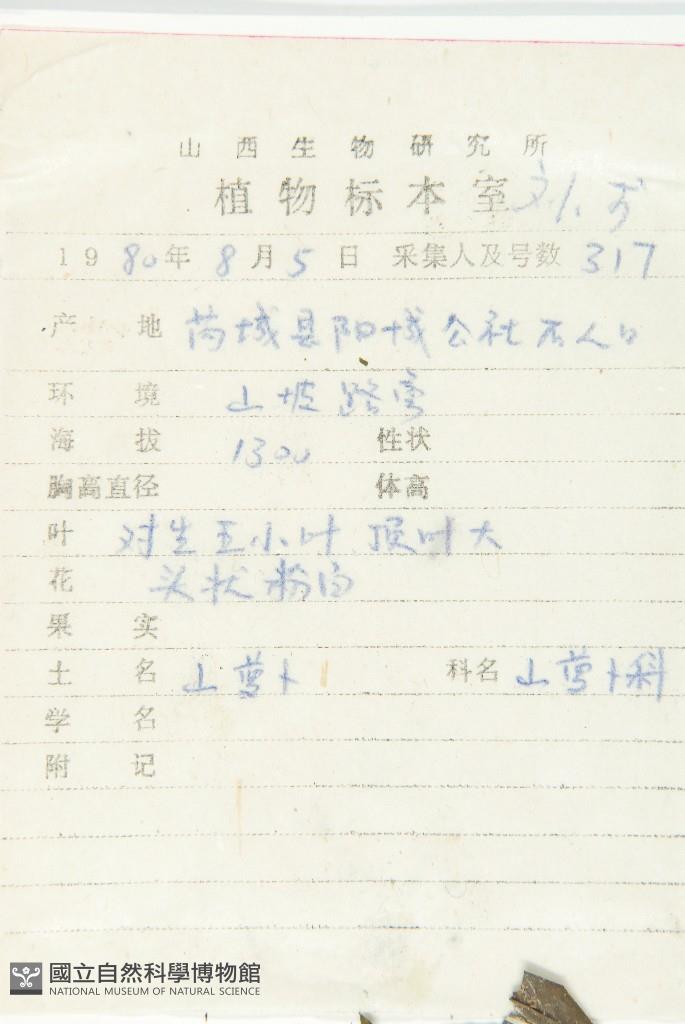 山西生物研究所
植物标本室 刘
1980年8月5日 采集人及号数 317
产地 芮城县阳城公社 人口
环境 山坡路旁
海拔 1300 性状
胸高直径 体高
叶 对生 五小叶 顶叶大
花 头状 粉
果实
土名 山萝卜 科名 山萝卜科
学名
附记
國立自然科學博物館
NATIONAL MUSEUM OF NATURAL SCIENCE